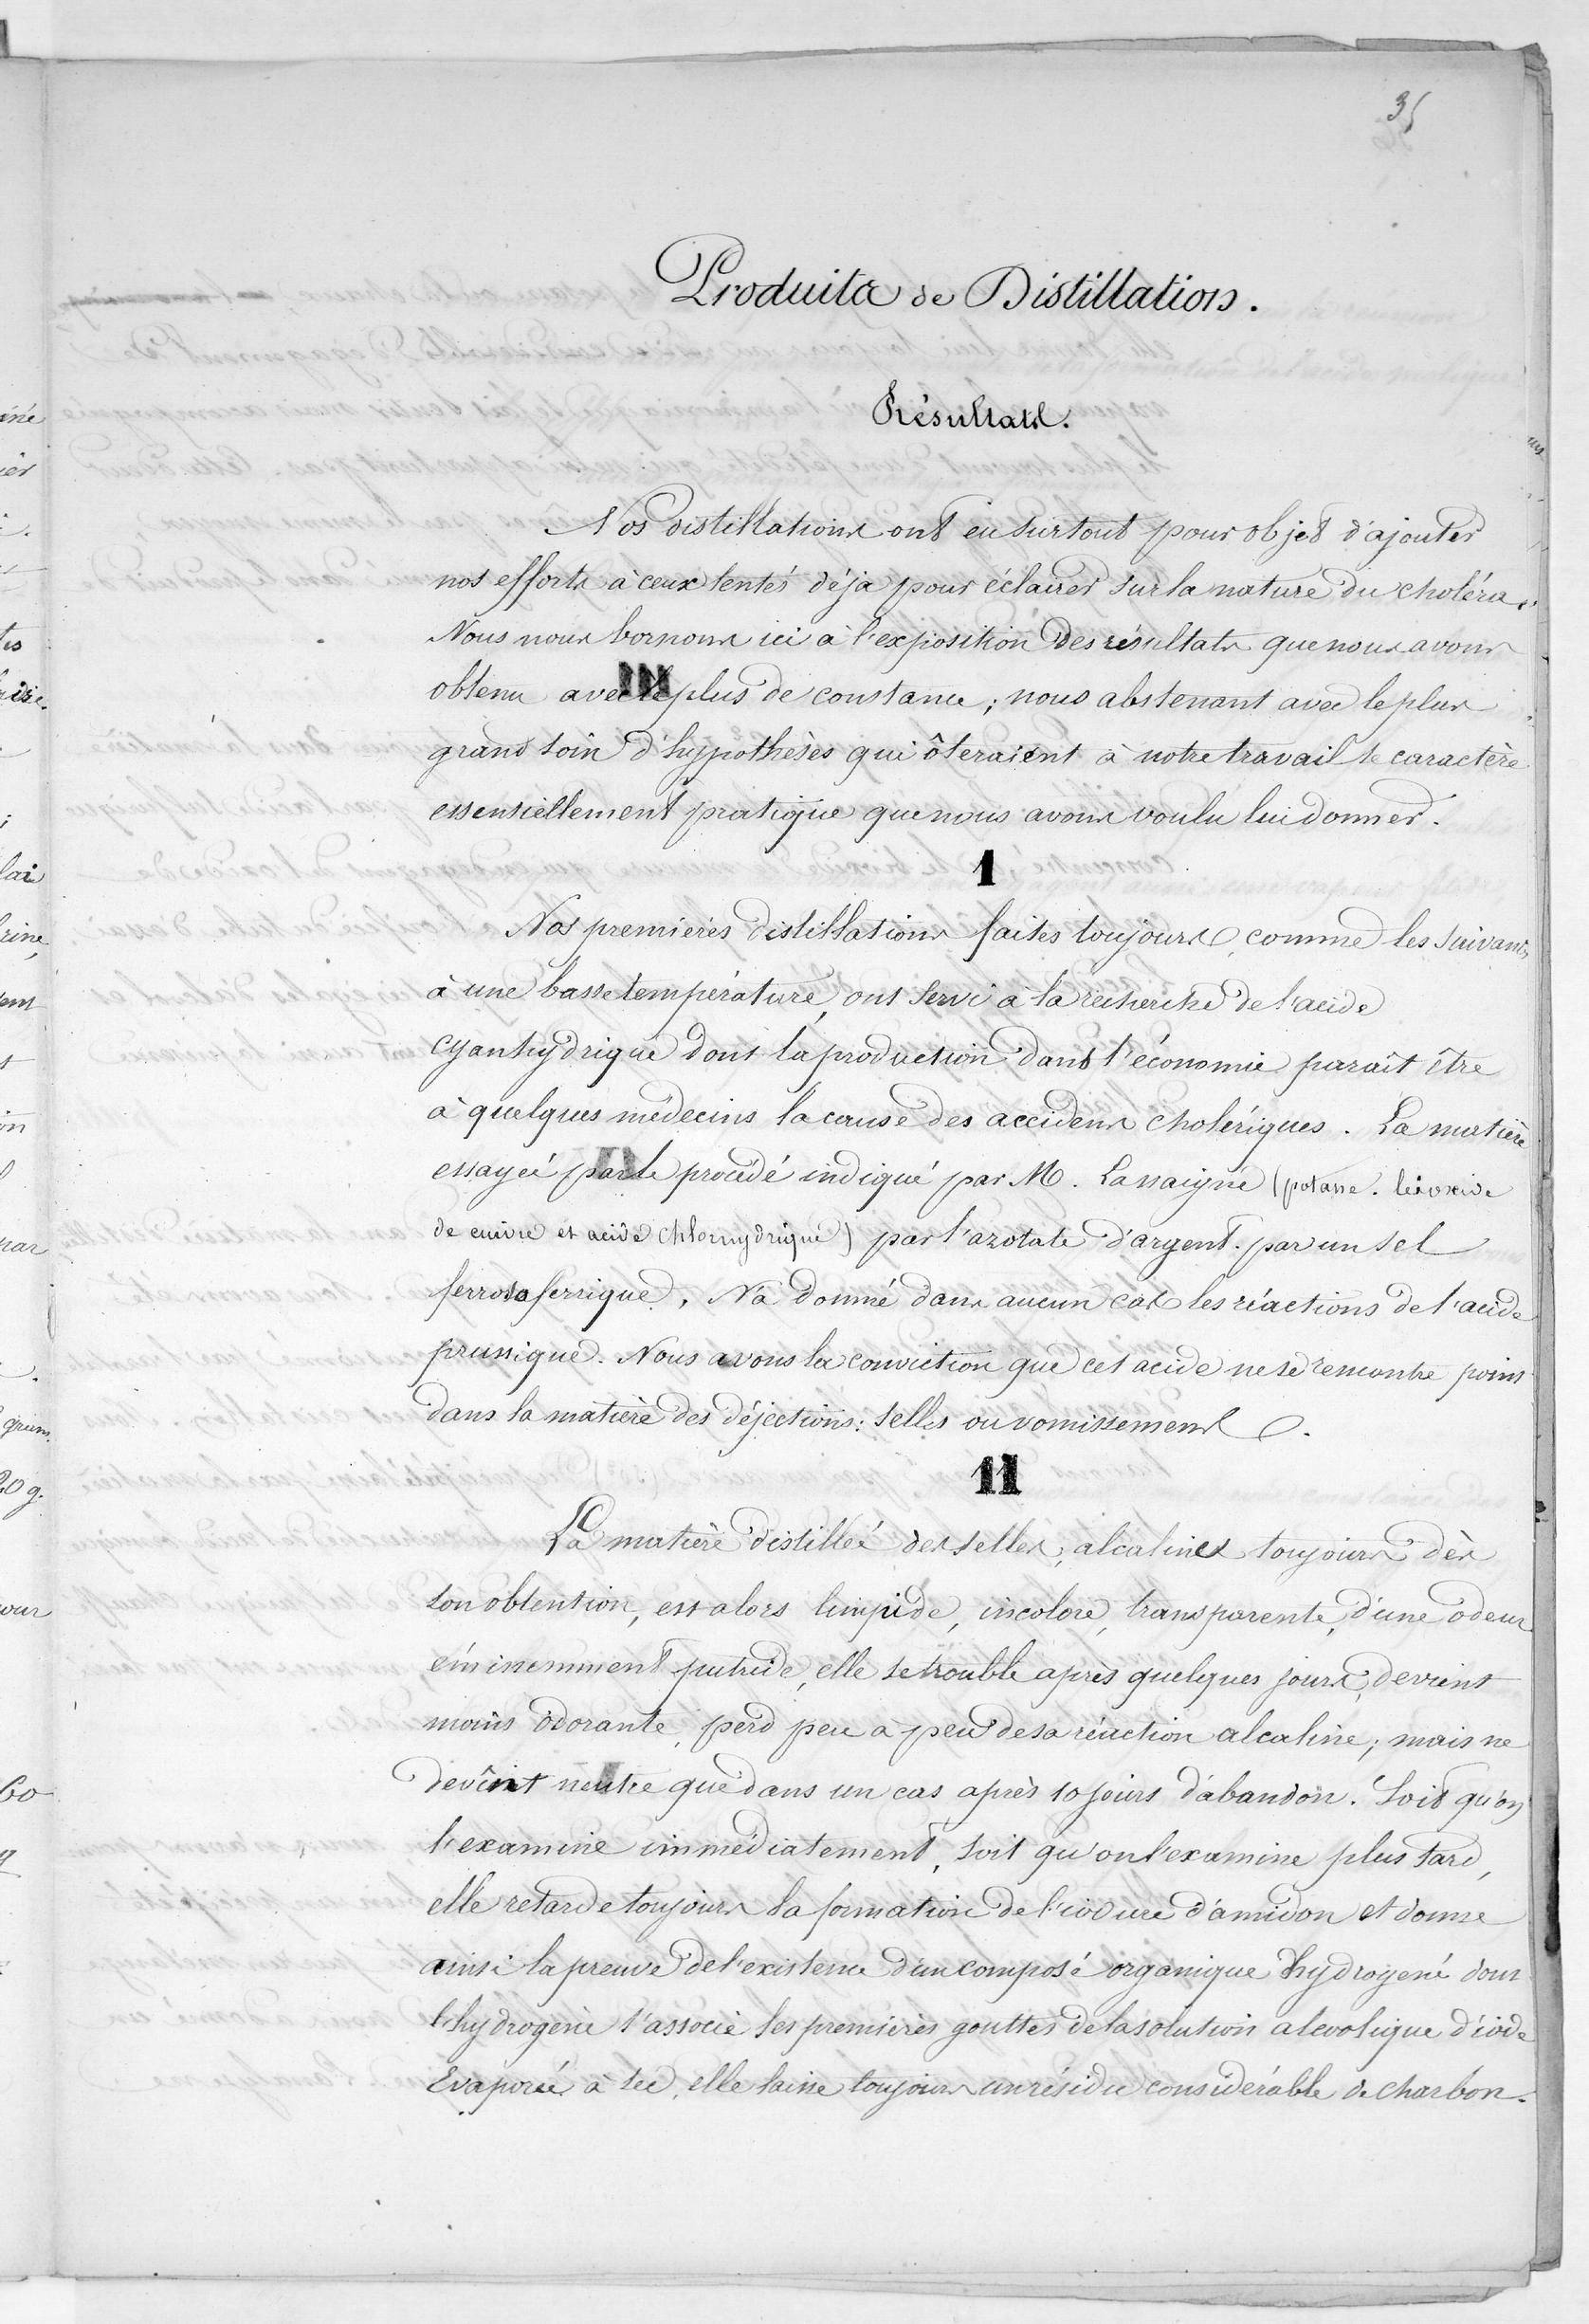 35
Produits de Distillation.
Résultats.
Nos distillations ont eu surtout pour objet d'ajouter
nos efforts à ceux tentés déja pour éclairer sur la nature du choléra.
Nous nous bornons ici à l'exposition des résultats que nous avons
obtenu avec le plus de constance ; nous abstenant avec le plus
grand soin d'hypothèses qui ôteraient à notre travail le caractère
essentiellement pratique que nous avons voulu lui donner.
1
Nos premières distillations faites toujours, comme les suivants,
à une basse température, ont servi à la recherche de l'acide
cyanhydrique dont la production dans l'économie parait être
à quelques médecins la cause des accidens cholériques. La matière
essayée par le procédé indiqué par M. Lassaigne (potasse. bioxide
de cuivre et acide chlorhydrique) par l'azotate d'argent. par un sel
ferroso ferrique, N'a donné dans aucun cas les réactions de l'acide
prussique. Nous avons la conviction que cet acide ne se rencontre point
dans la matière des déjections: selles ou vomissemens.
11
La matière distillée des selles, alcaline toujours dès
son obtention, est alors limpide, incolore, transparente, d'une odeur
éminemment putride, elle se trouble après quelques jours, devient
moins odorante, perd peu à peu de sa réaction alcaline ; mais ne
devînt neutre que dans un cas après 10 jours d'abandon. Soit qu'on
l'examine immédiatement, soit qu'on l'examine plus tard,
elle retarde toujours la formation de l'iodure d'amidon et donne
ainsi la preuve de l'existence d'un composé organique hydrogené dont
l'hydrogène s'associe les premières gouttes de la solution alcoolique d'iode
Evaporée à sec, elle laisse toujours un résidu considérable de charbon.